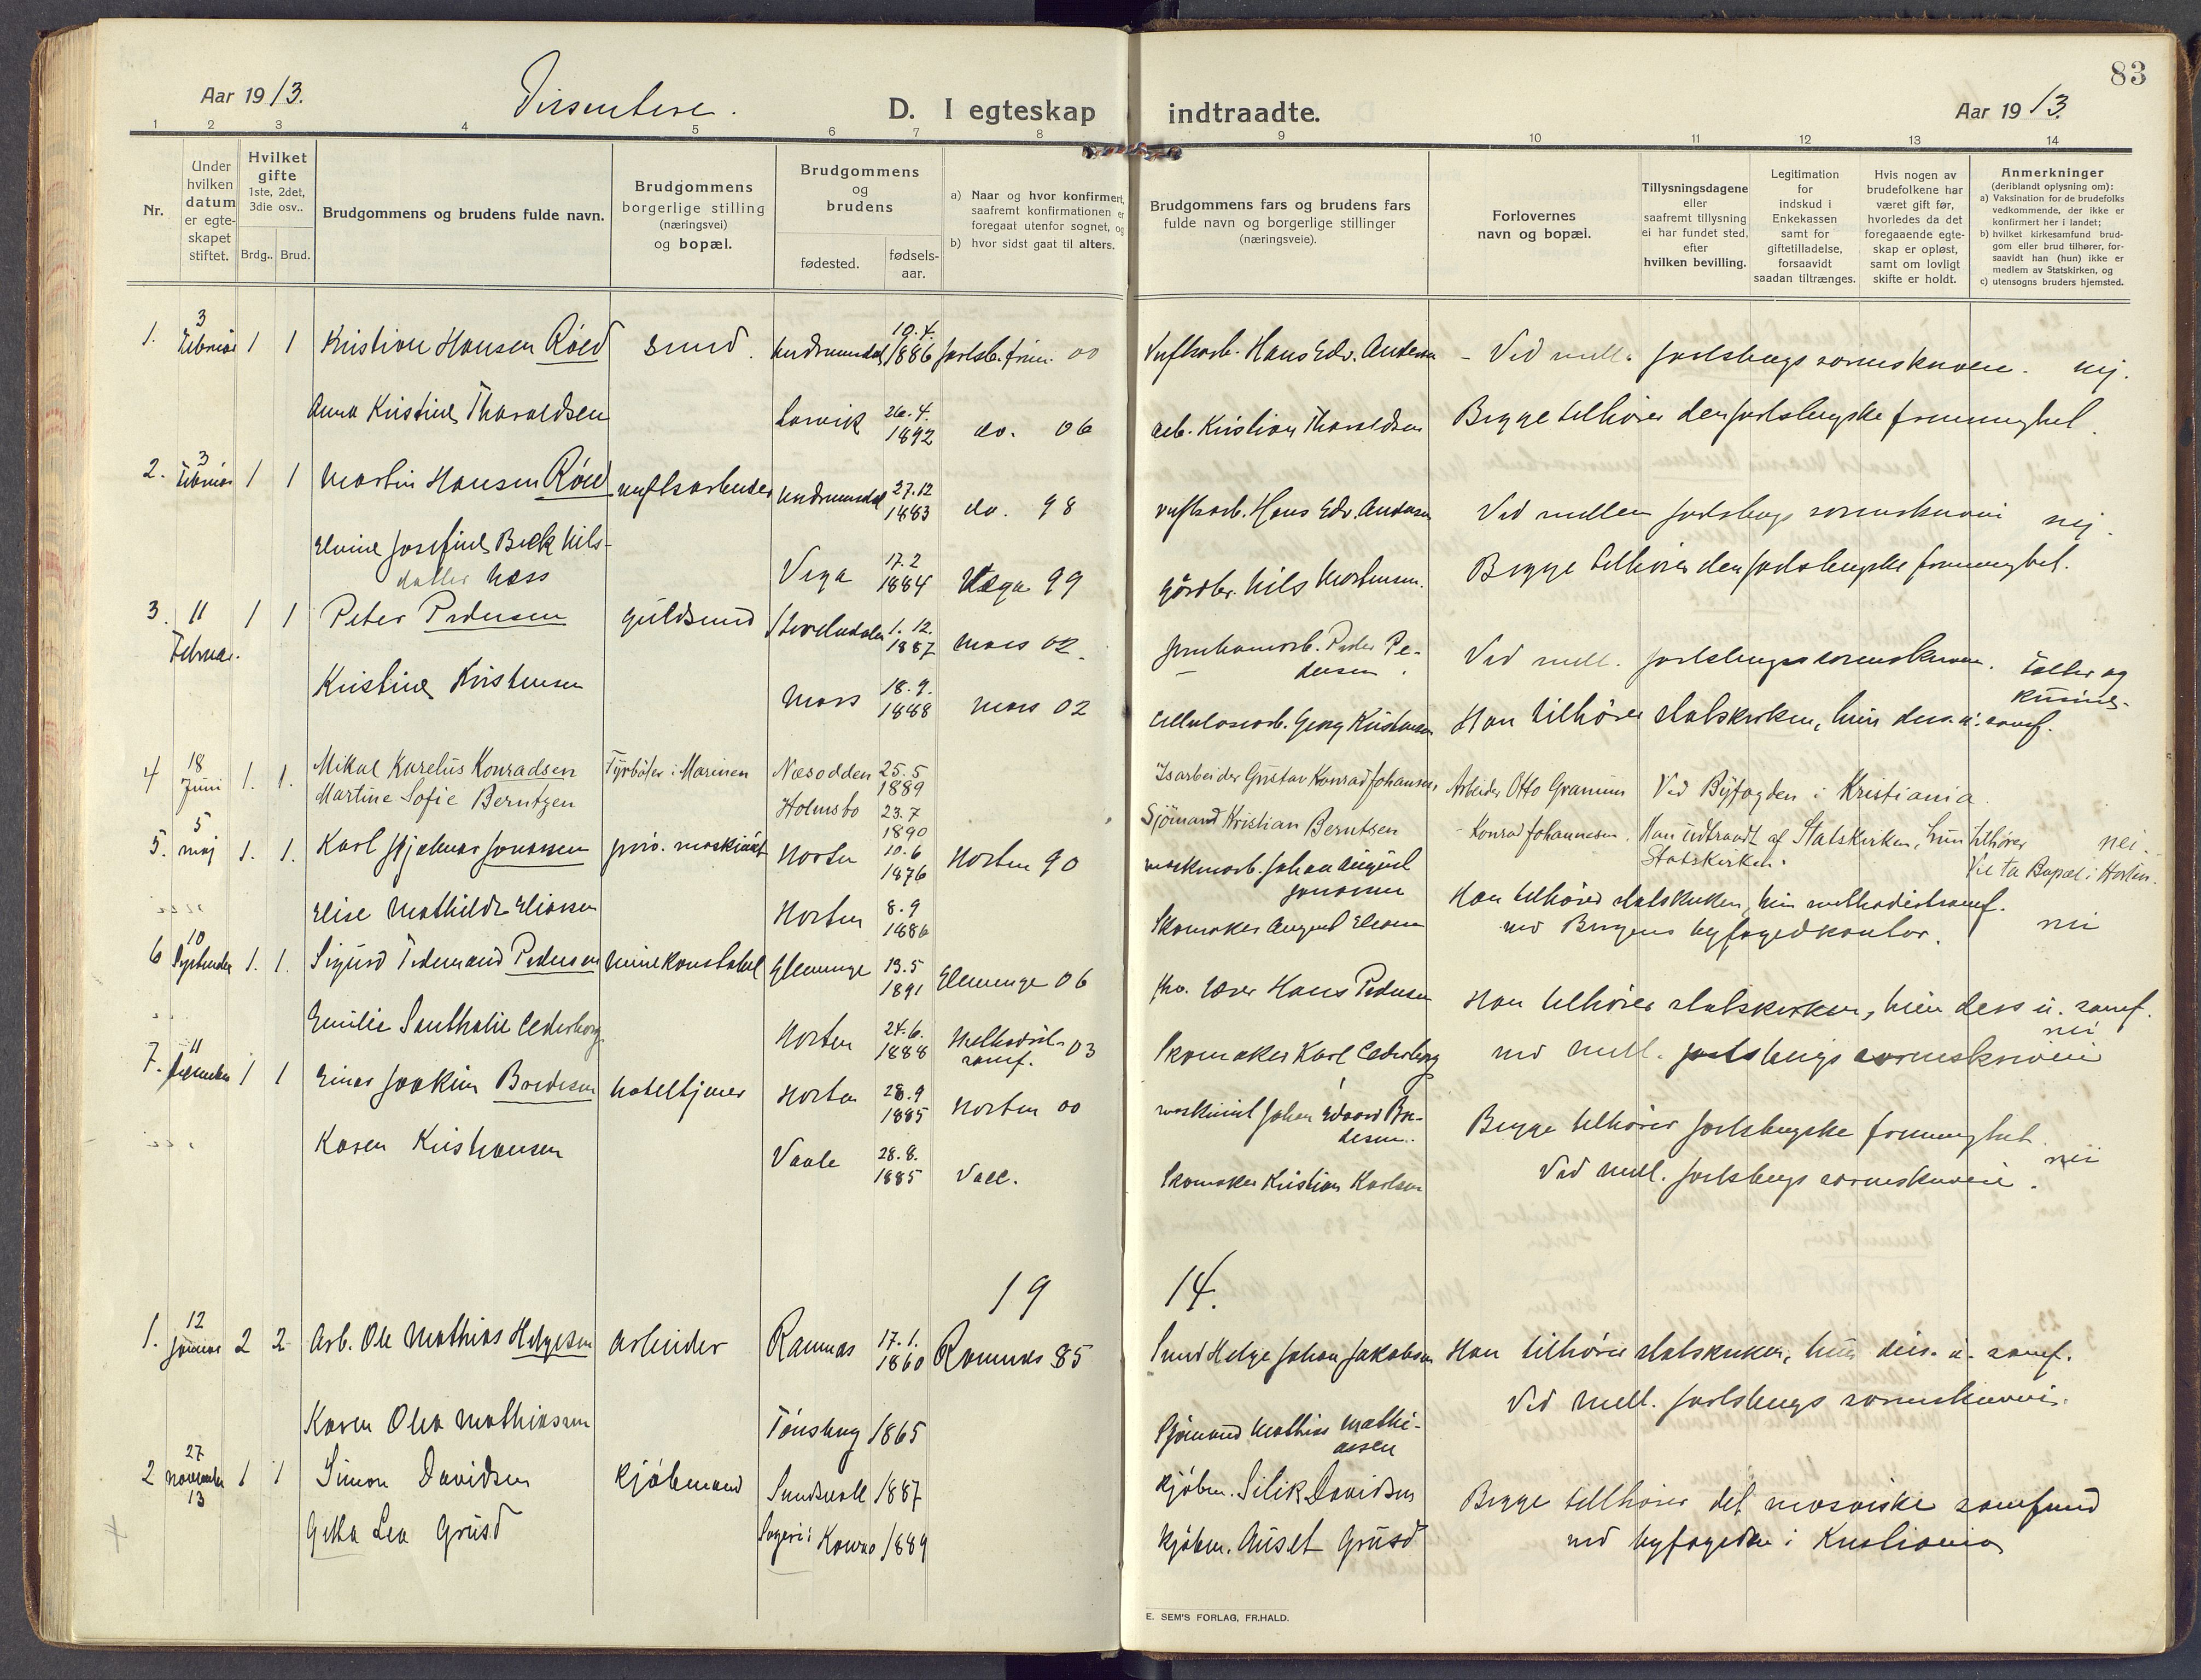 83
Aar 1913. Dissentere. D. I egteskap indtraadte. Aar 1913.
1 2 3 4 5 6 7 8 9 10 11 12 13 14
Nr.
Under hvilken datum er egte-skapet stiftet.
Hvilket gifte 1ste, 2det, 3die osv..
Brdg.. Brud.
Brudgommens og brudens fulde navn.
Brudgommens borgerlige stilling (næringsvei) og bopæl.
Brudgommens og brudens
fødested. fødsels-aar.
a) Naar og hvor konfirmert, saafremt konfirmationen er foregaat utenfor sognet, og
b) hvor sidst gaat til alters.
Brudgommens fars og brudens fars fulde navn og borgerlige stillinger (næringsveie).
Forlovernes navn og bopæl.
Tillysningsdagene eller saafremt tillysning ei har fundet sted, efter hvilken bevilling.
Legitimation for indskud i Enkekassen samt for giftetilladelse, forsaavidt saadan tiltrænges.
Hvis nogen av brudefolkene har været gift før, hvorledes da det foregaaende egte-skap er opløst, samt om lovligt skifte er holdt.
Anmerkninger (deriblandt oplysning om):
a) Vaksination for de brudefolks vedkommende, der ikke er konfirmert her i landet;
b) hvilket kirkesamfund brud-gom eller brud tilhører, for-saavidt han (hun) ikke er medlem av Statskirken, og
c) utensogns bruders hjemsted.
1. 3 Februar 1 1 Kristian Hansen Röed smed. Undrumsdal 10.4. 1886 Jarlsb. frim. 00 Verftsarb. Hans Edv. Andersen - Ved mell. Jarlsbergs sorenskriveri. nej.
Anna Kristine Tharaldsen Larvik 26.4. 1892 do. 06 arb. Kristian Tharaldsen Begge tilhører den jarlsbergske frimenighet.
2. 3 Februar 1 1 Martin Hansen Röed verftsarbeider Undrumsdal 27.12 1883 do. 98 verftsarb. Hans Edv. Andersen Ved mellem Jarlsbergs sorenskriveri nej.
Elvine Josefine Beck Nils-
datter Næss Vega 17.2 1884 Vega 99 gårdbr. Nils Mortensen. Begge tilhører den jarlsbergske frimenighet.
3. 11 Februar. 1 1 Peter Pedersen guldsmed 1.12. 1887 Moss 02. Peder Pe-
dersen. Ved mell. Jarlsbergs sorenskriveri. Fætter og
kusine.
Kristine Kristensen Moss 18.9. 1888 Moss 02 Cellulosearb. Georg Kristensen Han tilhører statskirken, hun diss. u. samf.
4 18 Juni 1. 1. Mikal Karelius Konradsen Fyrbøter i Marinen Næsodden 25.5 1889 Isarbeider Gustav Konrad Johansen, Arbeider Otto Granum Ved Byfogden i Kristiania
Martine Sofie Berntzen Holmsbo 23.7 1890 Sjömand Kristian Berntsen - Konrad Johannesen. Han udtraadt af Statskirken, hun tilhører
Statskirken. Vil ta Bopæl i Horten.
5. 5 maj 1. 1. Karl Hjalmar Jonassen prov. maskinist Horten 10.6 1876 Horten 90 maskinarb. Johan August
Jonassen Han tilhører statskirken, hun methodistsamf. nei.
Elise Mathilde Eliassen Horten 8.9 1886 Skomaker August Eliassen ved Bergens byfogedkontor. nei
6 10 September 1. 1. Sigurd Tidemand Pedersen minekonstabel Glemminge 13.5 1891 Glemminge 06 Hans Pedersen Han tilhører statskirken, hun diss u. samf.
Emilie Santhalie Cederborg Horten 24.6. 1888 Methodist-
samf. 03 Skomaker Karl Cederborg ved mell. Jarlsbergs sorenskriveri nei
7. 11 1 1 Einar Joakim Bredesen hoteltjener Horten 28.9 1885 Horten 00 maskinist Johan Edvard Bre-
desen. Begge tilhører jarlsbergske frimenighet.
Karen Kristiansen Vaale 28.8. 1885 Vaale. Skomaker Kristian Karlsen Ved mell. Jarlsbergs sorenskriveri. nei
1914.
1. 12 Januar 2 2 Arb. Ole Mathias Helgesen arbeider Ramnes 17.1. 1860 Ramnes 85 Smed Helge Johan Jakobsen Han tilhører statskirken, hun diss. u. samf.
Ved mell. Jarlsbergs sorenskriveri.
Karen Olea Mathiassen Tönsberg 1865 Sjømand Mathias Mathi-
assen
2 27 november 13 1 1 Simon Davidsen kjøbmand Sundsvall 1887 kjøbm. Silik Davidsen Begge tilhører det mosaiske samfund
Getta Lea Grusd Kowno 1889 kjøbm. Auset Grusd ved byfogden i Kristiania
E. SEM'S FORLAG, FR.HALD.